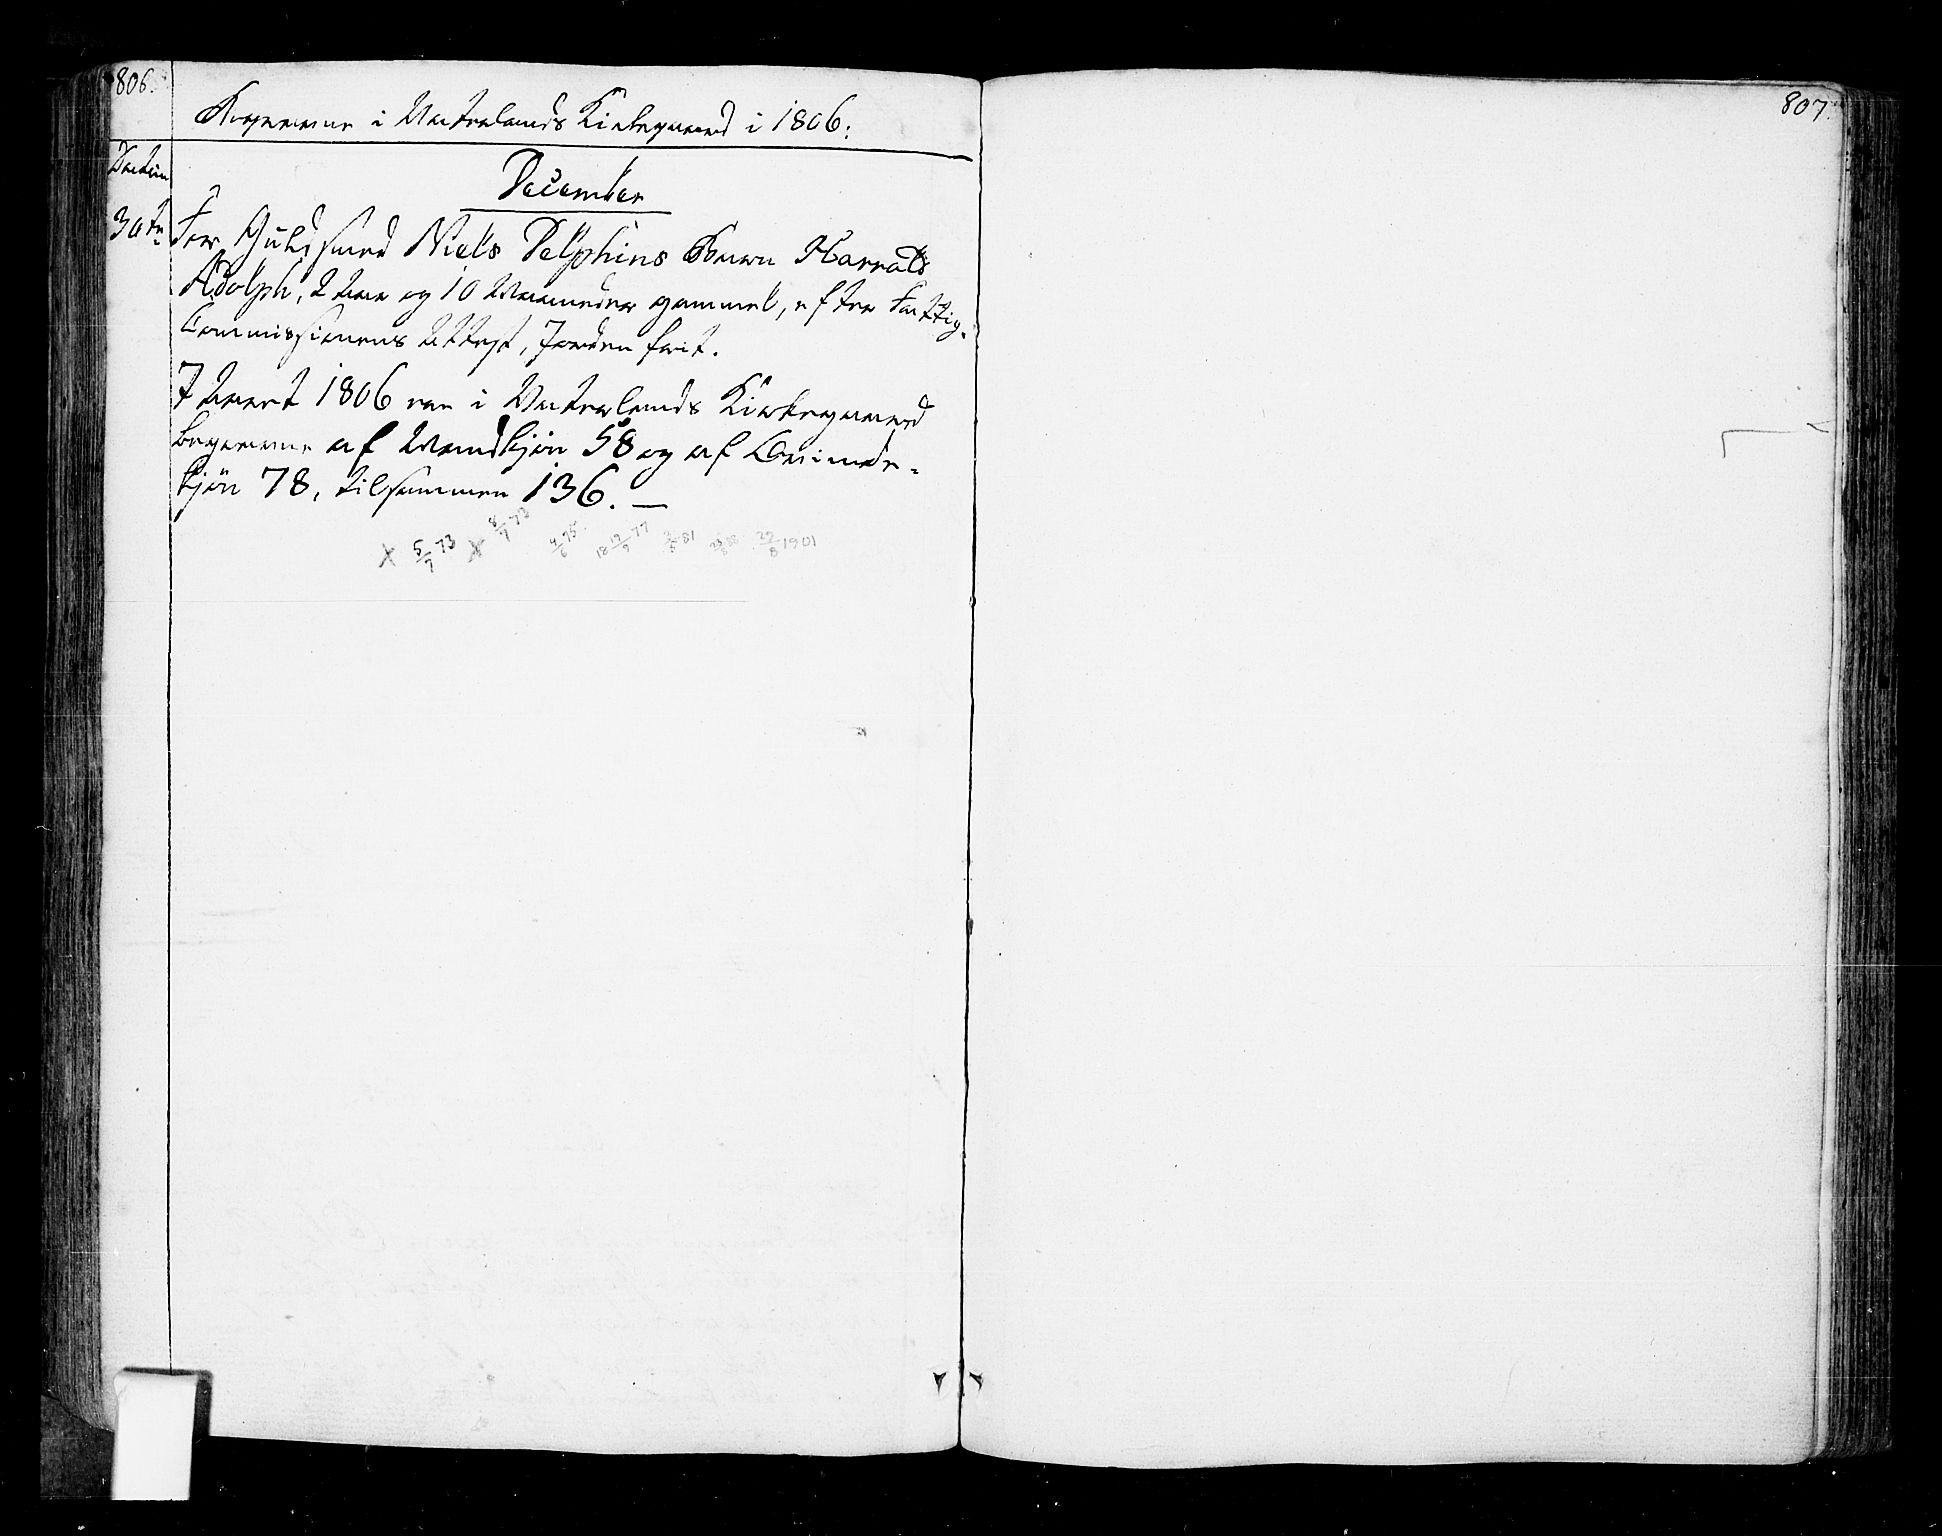 806.
Begravne i Vaterlands Kirkegaard i 1806:
Datum
December
30te For Guldsmed Niels Delphins Barn Harrald
Adolph, 2 Aar og 10 Maaneder gammel, efter Fattig-
Commissionens Attest, Jorden frit.
I Aaret 1806 ere i Vaterlands Kirkegaard
begravne af Mandkjön 58 og af Qvinde-
kjön 78, tilsammen 136. —
5/7 73 8/7 73 4/6 75. 18 19/9 77 81 88 1901
807.